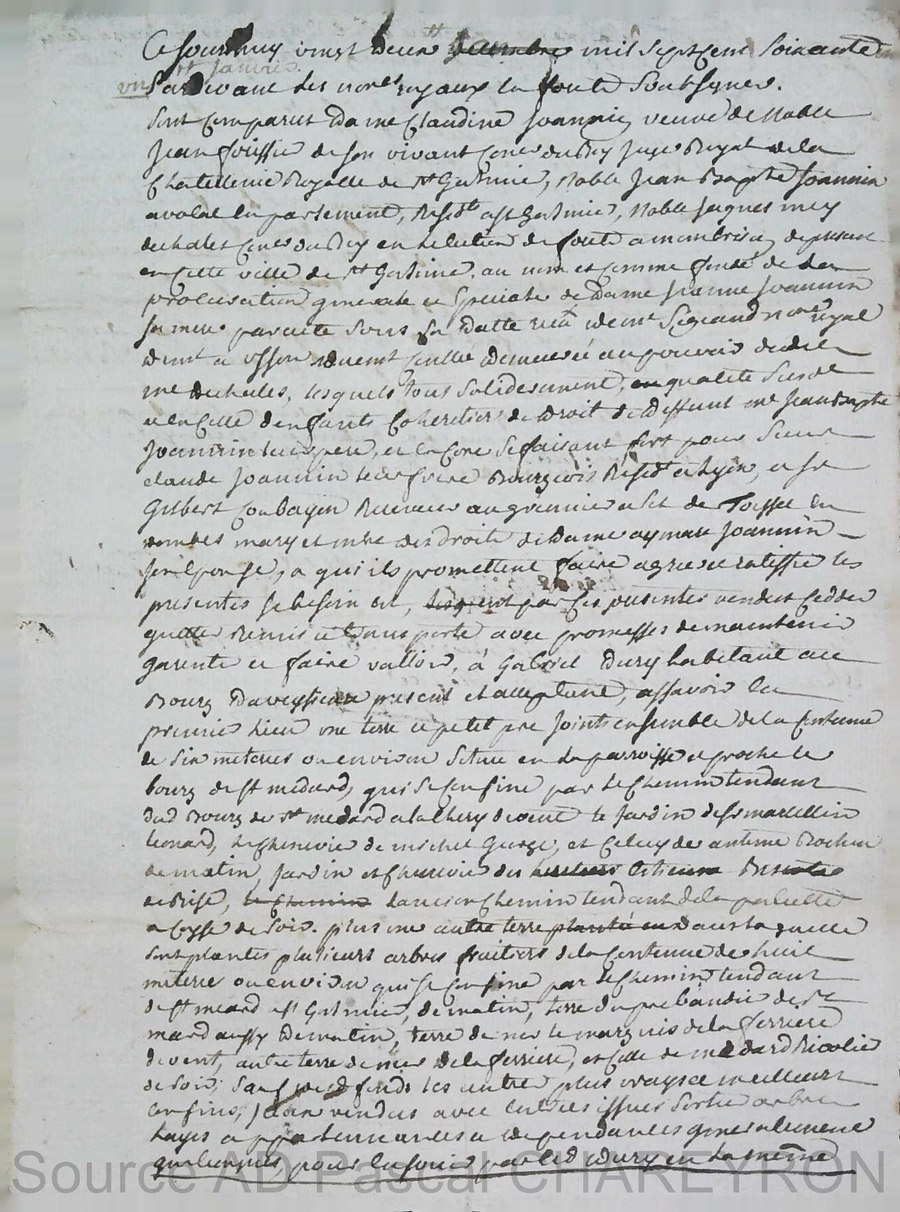 Ce Jourdhuy vingt deux decembre mil sept cent soixante
un Janvier
Pardevant les nores royaux en forête soubsignes.
sont Comparus Dame Claudine Joannin veuve de Noble
Jean de son vivant Coner du Roy Juge Royal de la
Chatellenie Royalle de St Galmier, Noble Jean Baptte Joannin
avocat en parlement, Residt a St Galmier, Noble Jaques mey
dechales Coner du Roy en Lelection de foret a montbrison de present
en Cette ville de St Galmier, au nom et comme fondé de la
procuration generale et speciale de Dame Jeanne Joannin
sa mere parcelle sous sa datte nore royal
demeuré au pouvoir dudit
me dechales, lesquels tous solidairement, en qualité susde
et en Celle denfants Coheretiers de Droit de deffunt me Jean Baptte
Joannin leur pere, et encore se faisant fort pour Sieur
claude Joannin leur frere Bourgeois Residt a Lyon, et Sr
Gilbert Receveur au grenier a sel de Toissei en
dombes mary et mtre des droits de Dame aymare Joannin
son Epouse, a qui ils promettent faire agreer et ratiffier les
presentes se besoin est, par ces presentes vendus cedder
quitter remis et transporté avec promesses de maintenir
garentir et faire valloir, à Gabriel Dury habitant au
Bourg present et acceptant, assavoir en
premier lieu une terre et petit pre Joints ensemble de la Contenue
de six meteres ou environ située en la parroisse et proche le
bourg de St medard, qui se Confine par le Chemin tendant
dud Bourg de St medard a de vent le Jardin de Sr marcellin
Leonard, le Chenevier de michel et Celuy de antoine Rochen
de matin, Jardin et Chenevier des
de Bise, le Chemin Lancien Chemin tendant de la
de soir. plus une autre terre plantée en dans laquelle
sont plantes plusieurs arbres fruitiers de la Contenue de huit
meteres ou environ qui se Confine par le Chemin tendant
de St meard a St Galmier, de matin, terre du prebandier de St
mard aussy de matin, terre de mer le marquis de la ferriere
de vent, autre terre de mer de la ferriere, et Celle de medard Nicolier
de soir, sauf desd fonds les autre plus vrays et meilleurs
confins, Iceux vendus avec entrées issues sortie arbres
hayes appartenances et dependances generalement
quelconques pour en Jouir par led Dury en la meme
Source AD Pascal CHAREYRON